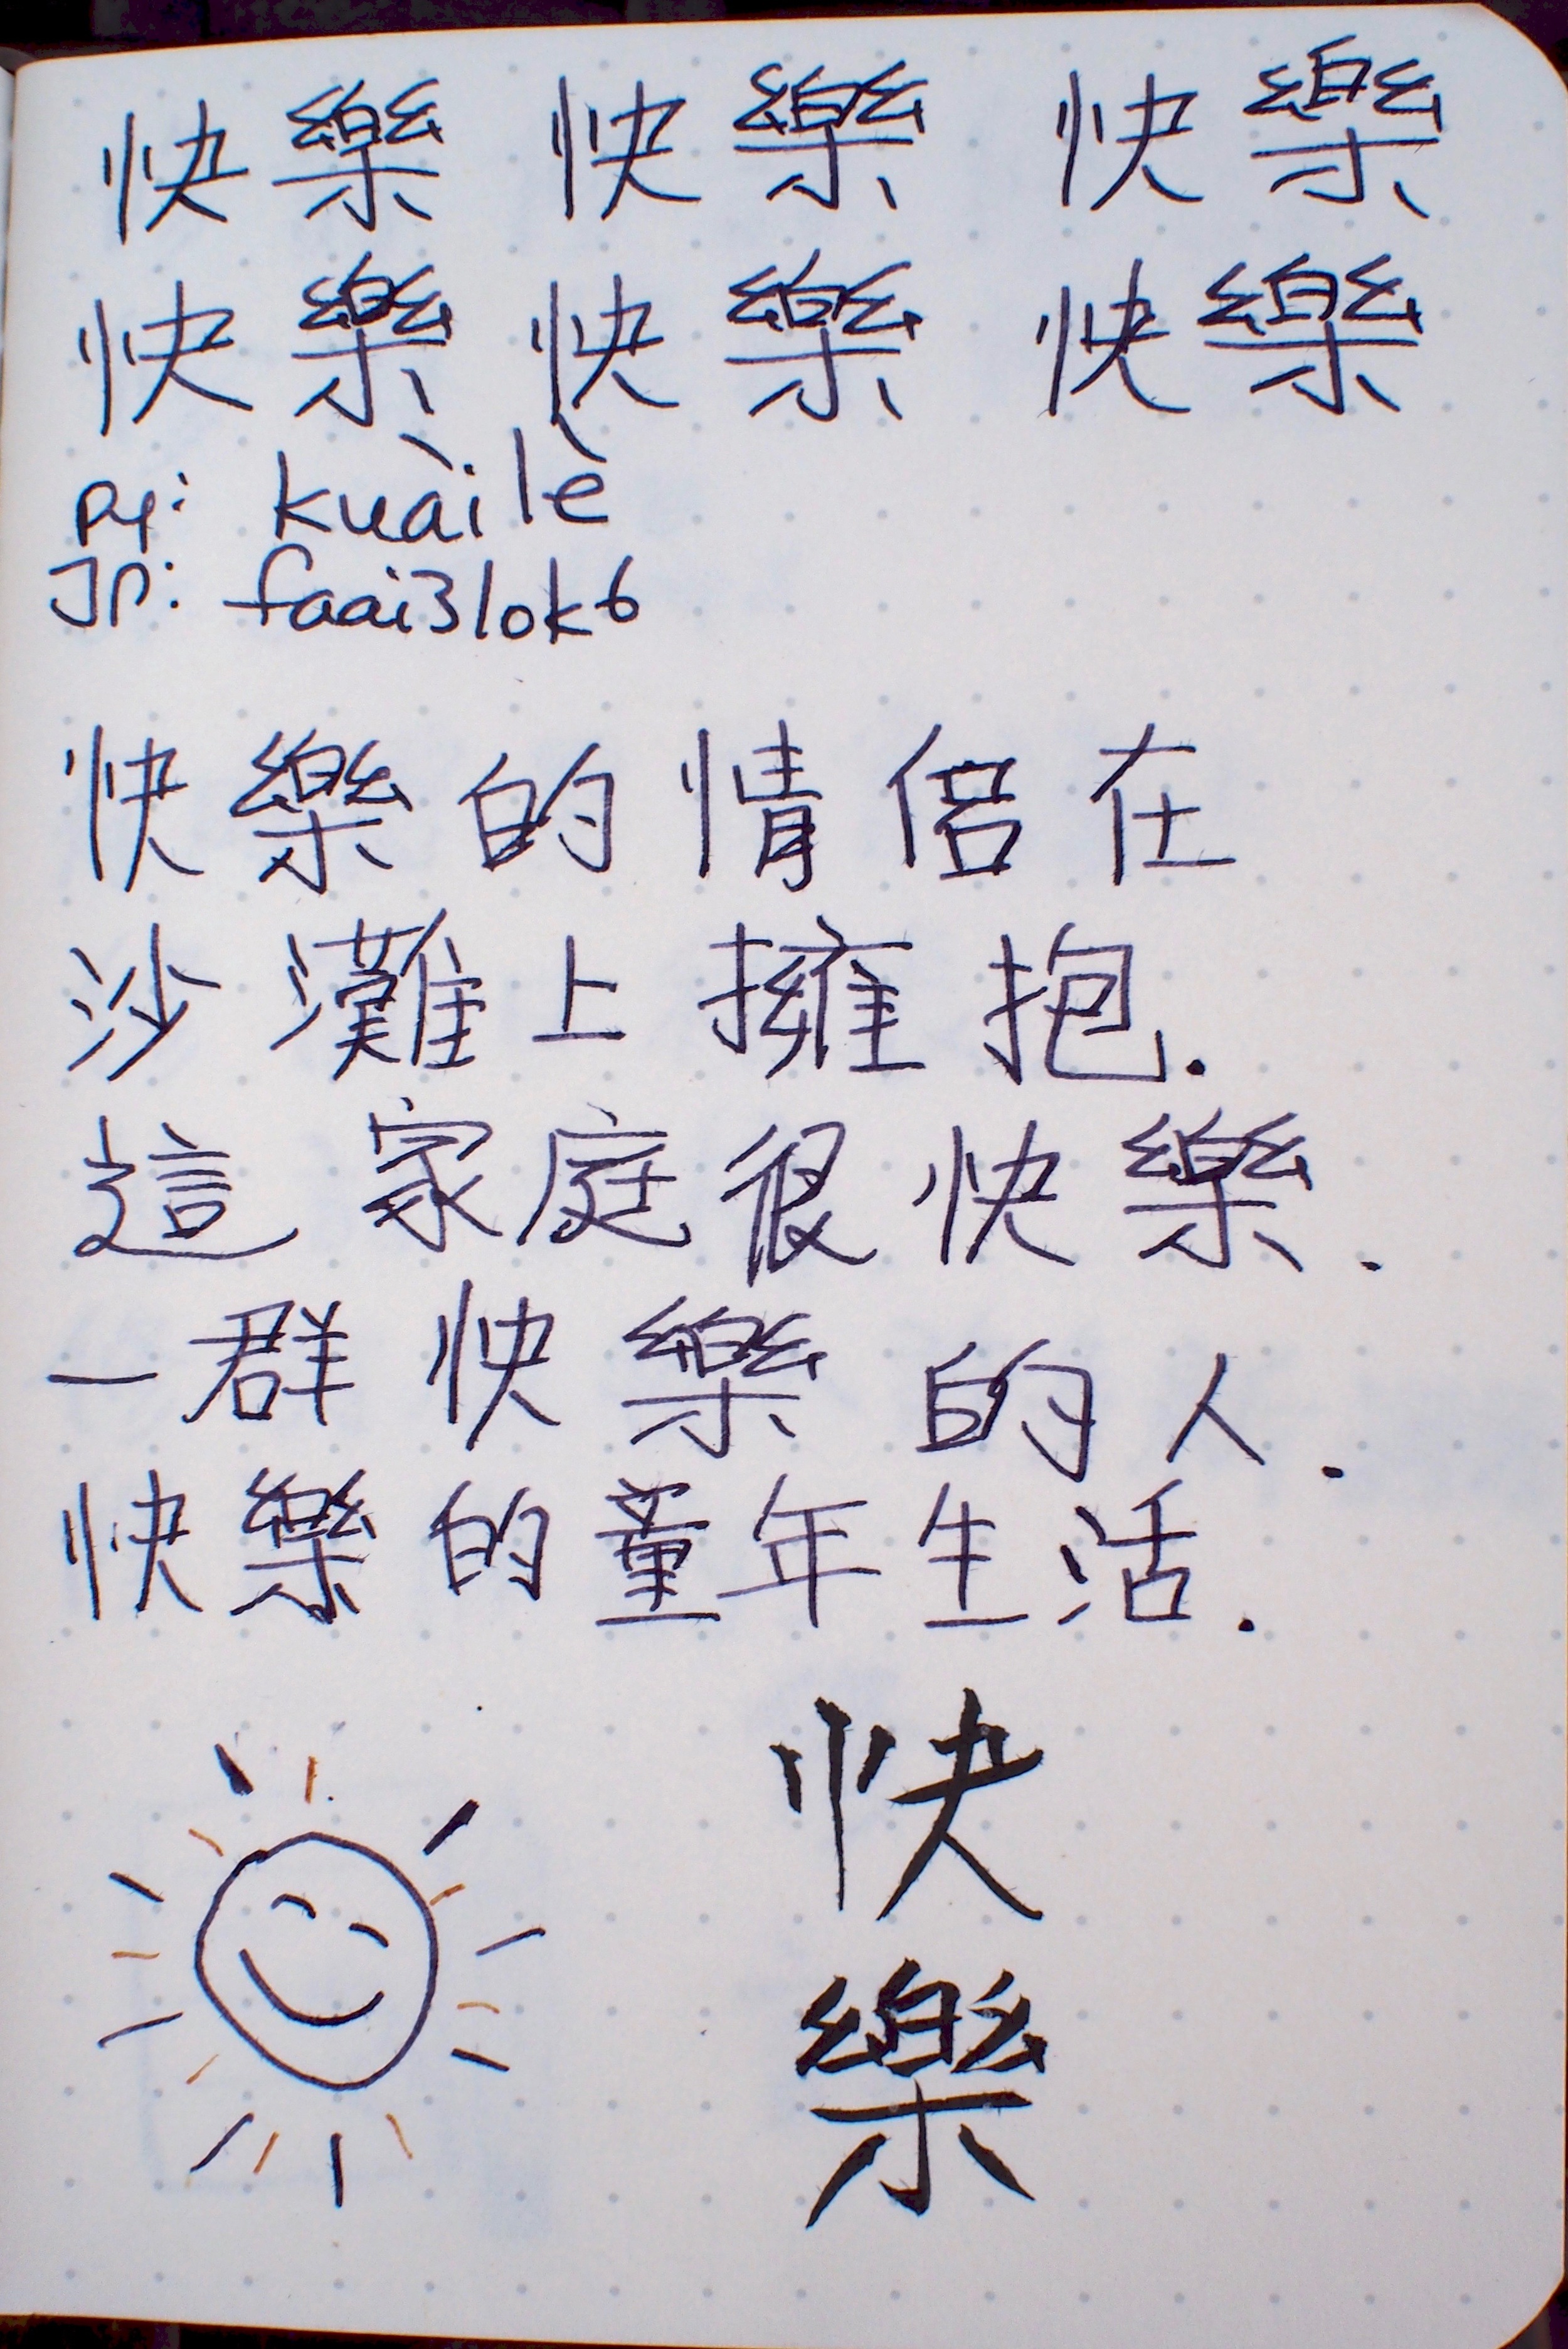 快樂 快樂 快樂
快樂 快樂 快樂
py: kuàilè
JP: faai3lok6
快樂的情侶在
沙灘上擁抱.
這家庭很快樂.
一群快樂的人.
快樂的童年生活.
快
樂